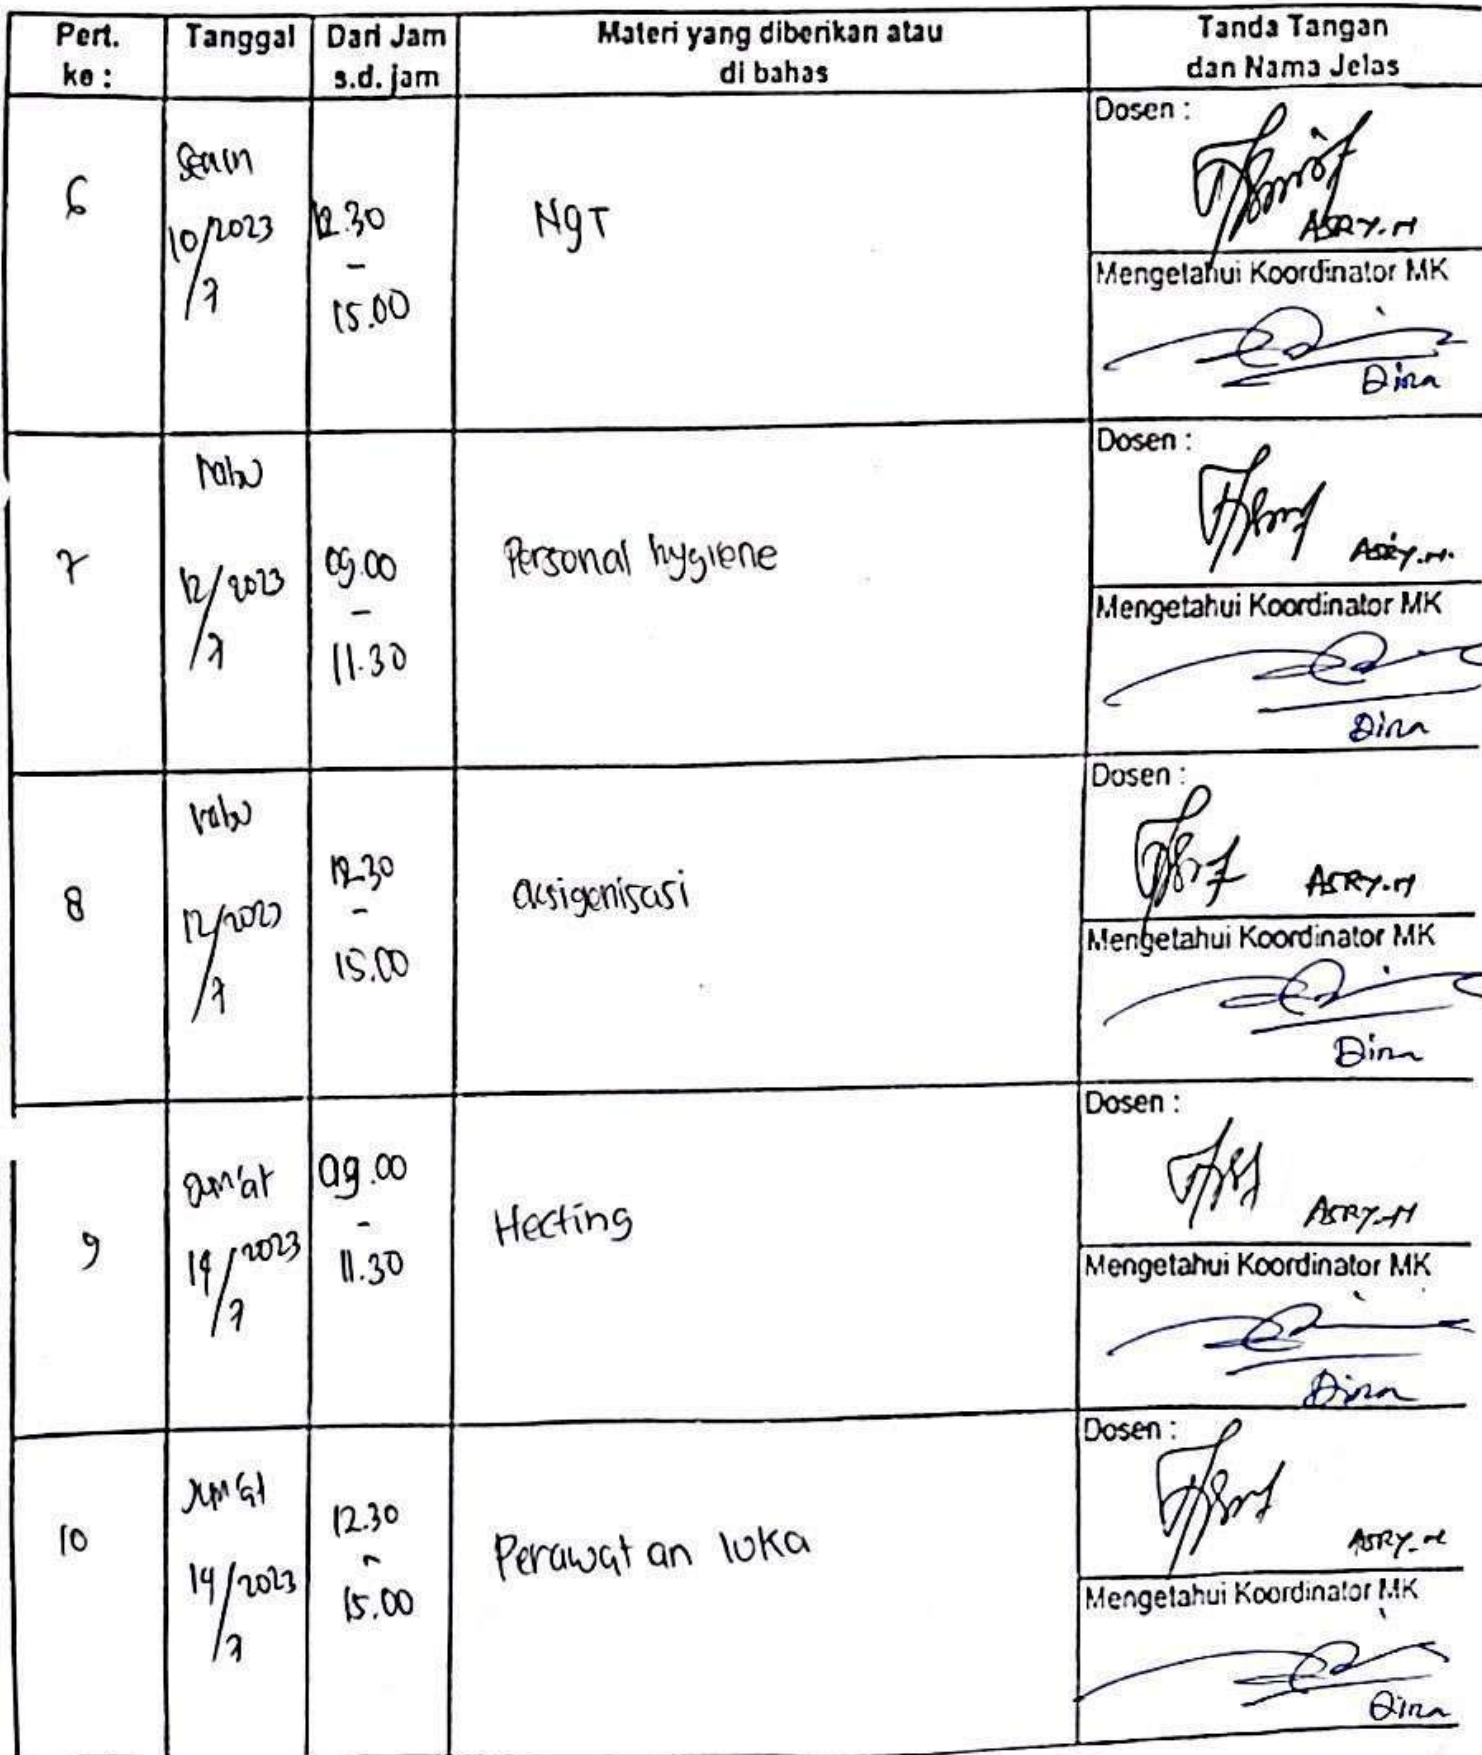 Pert. ke :
Tanggal
Dari Jam s.d. jam
Materi yang diberikan atau di bahas
Tanda Tangan dan Nama Jelas
6
Senin
10/2023
/7
12.30
-
15.00
NgT
Dosen :
ASRY.M
Mengetahui Koordinator MK
Dina
7
rabu
12/2023
/7
09.00
-
11.30
Personal hygiene
Dosen :
ASRY.M.
Mengetahui Koordinator MK
Dina
8
rabu
12/2023
/7
12.30
-
15.00
oksigenisasi
Dosen :
ASRY.M
Mengetahui Koordinator MK
Dina
9
Jum'at
14/2023
/7
09.00
-
11.30
Hecting
Dosen :
ASRY.M
Mengetahui Koordinator MK
Dina
10
Jum'at
14/2023
/7
12.30
-
15.00
Perawatan luka
Dosen :
ASRY.M
Mengetahui Koordinator MK
Dina